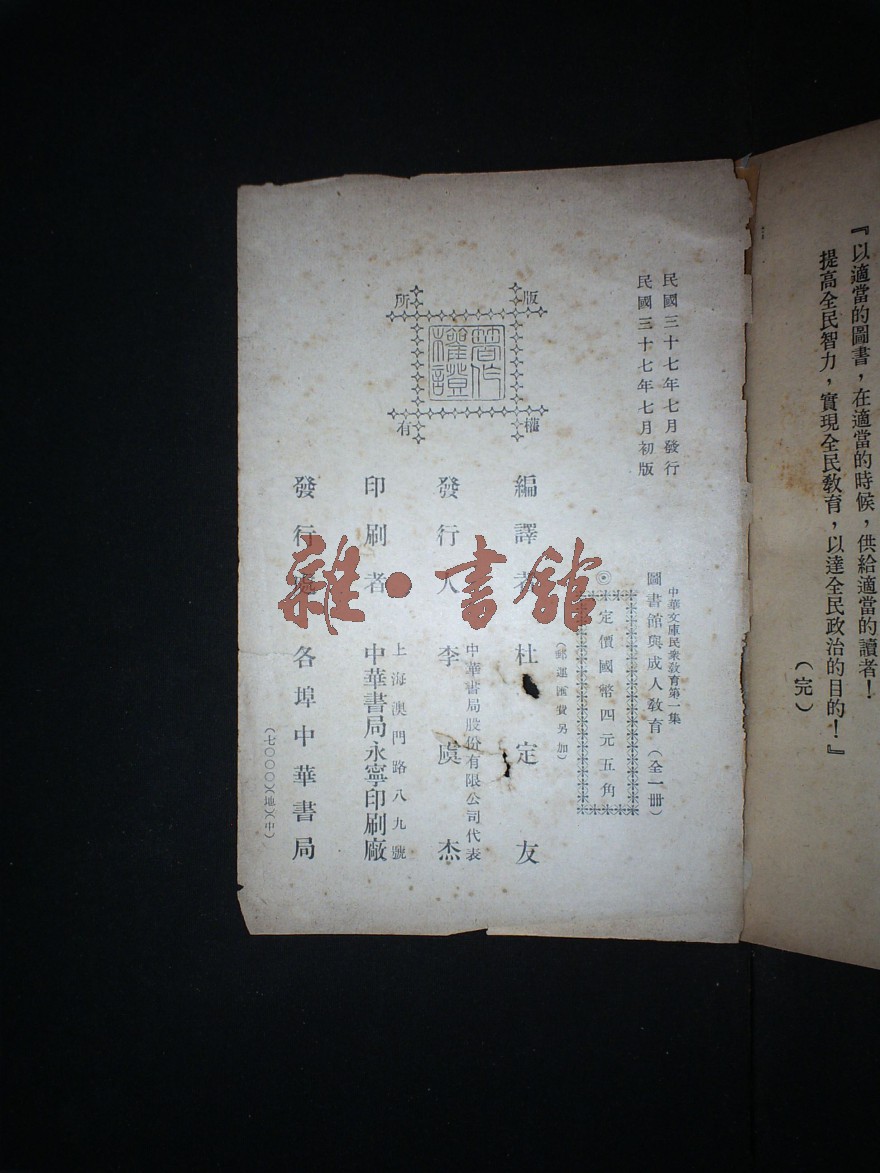 『以適當的圖書，在適當的時候，供給適當的讀者！
提高全民智力，實現全民教育，以達全民政治的目的！』
（完）
民國三十七年七月發行
民國三十七年七月初版
中華文庫民衆教育第一集
圖書館與成人教育（全一冊）
◎定價國幣四元五角
（郵運匯費另加）
版權所有
著作權證
編譯者 杜定友
發行人 中華書局股份有限公司代表 李虞杰
印刷者 上海澳門路八九號 中華書局永寧印刷廠
發行處 各埠中華書局
（七〇〇〇〇）（地）（中）
雜·書館